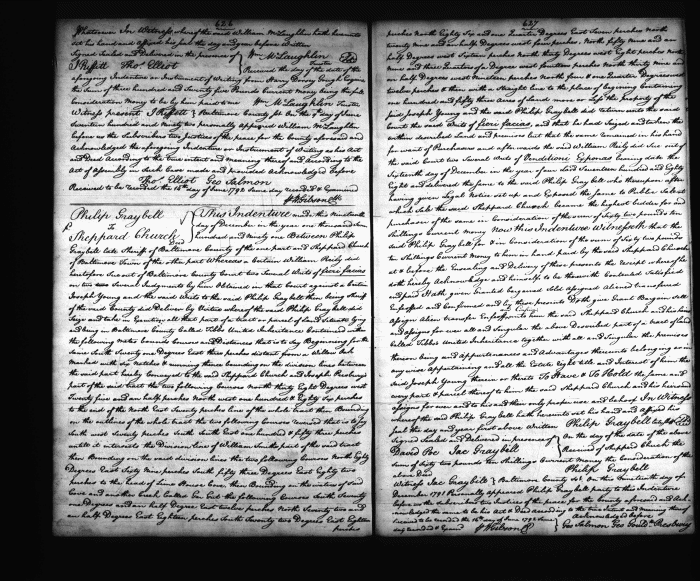 626
Whatever In Witness whereof the said William McLaughlin hath hereunto
set his hand and affixed his seal the day and year before written
Signed Sealed and Delivered in the presence of
J Russitt Thos Elliot
Wm McLaughlin
Received the day of the date of the
aforegoing Indenture or Instrument of Writing from Harry Dorsey Gough Esqr
the sum of three hundred and Seventy five Pounds Current money being the full
Consideration Money to be by him paid to me Wm McLaughlin
Witness present J Russitt Baltimore County Sct On the 9th day of June
Seventeen hundred and ninety two personally appeared William McLaughlin
before us the Subscribers two Justices of the peace for the County aforesaid and
Acknowledged the aforegoing Indenture or Instrument of Writing as his Act
and Deed According to the true intent and meaning thereof and According to the
Act of Assembly in such Case made and provided Acknowledged before
Thos Elliot Geo Salmon
Received to be recorded the 16th day of June 1792 Same day recorded & Examined
Philip Graybell
To
Sheppard Church
Deed
This Indenture made this nineteenth
day of December in the year one thousand seven
hundred and ninety one Between Philip
Graybell late Sheriff of Baltimore County of the one part and Sheppard Church
of Baltimore Town of the other part Whereas a Certain William Reily did
heretofore sue out of Baltimore County Court two several Writs of fieri facias
on two several Judgments by him Obtained in that Court against a Certain
Joseph Young and the said Writs to the said Philip Graybell then being Sheriff
of the said County did Deliver by Virtue whereof the said Philip Graybell did
Seize and take in Execution all that part of a tract or parcel of Land Situate lying
and being in Baltimore County Called Tibbs United Inheritance Contained within
the following metes bounds Courses and Distances that is to say Beginning for the
same South Seventy two Degrees East three perches distant from a Willow Oak
marked with six Notches & running thence bounding on the division lines between
the said part hereby Conveyed to the said Sheppard Church and Joseph
part of the said tract the two following Courses North thirty Eight Degrees West
Twenty five and an half perches North west one hundred & Eighty six perches
to the end of the North East Twenty perches line of the whole tract then Bounding
on the outlines of the whole tract the two following Courses reversed that is to say
South west Twenty perches South South East one hundred & fifty three perches
until it intersects the Division lines of William Smith part of the said tract
then Bounding on the said division lines the two following Courses North Eighty
Degrees East Sixty Nine perches South fifty three Degrees East Eighty two
perches to the head of Lime House Cove, then Bounding on the waters of said
Cove and another Creek Called Gin Gut the following Courses South Seventy
one Degrees and an half Degree East twelve perches North Seventy two and
an half Degrees East Eighteen perches South Seventy two Degrees East Eighteen
perches
627
perches North Eighty Six and one Quarter Degrees East Seven perches North
twenty nine and an half Degrees west four perches. North fifty nine and an
half Degrees west Sixteen perches North thirty Degrees west Eight perches North
nine and three Quarters of a Degree west fourteen perches North thirty nine and
an half Degrees west Nineteen perches North four & one Quarter Degrees west
twelve perches & then with a Straight line to the place of begining Containing
one hundred and fifty three Acres of land more or less the property of the
said Joseph Young and the said Philip Graybell did return unto the said
Court the said Writs of fieri facias and that he had Seized and taken the
within described Land and premises but that the same remained in his hand
for want of Purchasers and afterwards the said William Reily did Sue out of
the said Court two Several Writs of Venditioni Exponas bearing date the
Sixteenth day of December in the year of our Lord Seventeen hundred and Eighty
Eight and delivered the same to the said Philip Graybell who thereupon after
having given legal Notice set up and Exposed the same to Public Sale at
which Sale the said Sheppard Church became the highest bidder for and
purchaser of the same in Consideration of the sum of Sixty two pounds & ten
Shillings Current Money Now this Indenture Witnesseth that the
said Philip Graybell for & in Consideration of the sum of Sixty two pounds
ten Shillings Current Money to him in hand paid by the said Sheppard Church
at & before the Ensealing and Delivery of these presents the receipt whereof he
doth hereby Acknowledge and himself to be therewith Contented Satisfied
and paid Hath given Granted bargained Sold Assigned Aliened transferred
Enfeoffed and Confirmed and by these presents Doth give Grant Bargain Sell
Assign Alien transfer Enfeoff and Confirm to him the said Sheppard Church and his heirs
and Assigns for ever all and Singular the above Described part of a tract of Land
Called Tibbs United Inheritance together with all and Singular the premises
thereon being and appurtenances and Advantages thereunto belonging or in
any wise appertaining and all the Estate right title and Interest of him the
said Joseph Young therein or thereto To Have & To Hold the same and
every part & parcel thereof to him the said Sheppard Church and his heirs and
Assigns for ever and to his and their only proper use and behoof In Witness
whereof the said Philip Graybell hath hereunto set his hand and affixed his
seal the day and year first above written Philip Graybell late Shff
Signed Sealed and Delivered in presence of
David Poe Jac Graybell
On the day of the date of the above
Received of Sheppard Church the
Sum of Sixty two pounds ten Shillings Current Money the Consideration of the
above Deed Philip Graybell
Witness Jac Graybell Baltimore County Sct On this Nineteenth day of
December 1791 Personally appeared Philip Graybell party to this Indenture
before us the subscribers two Justices of the peace for the county aforesaid and Ack-
nowledged the same to be his Act & Deed according to the true intent and meaning thereof
Received to be recorded the 16th day of June 1792 Same
day recorded & Examd
Acknowledged before
Geo Salmon Geo Gould Presbury